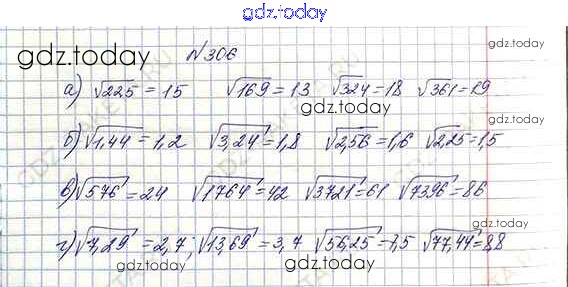 gdz.today
gdz.today №306 gdz.today
а) √225 = 15 √169 = 13 √324 = 18 √361 = 19
gdz.today
б) √1,44 = 1,2 √3,24 = 1,8 √2,56 = 1,6 √2,25 = 1,5
в) √576 = 24 √1764 = 42 √3721 = 61 √7396 = 86
gdz.today
г) √7,29 = 2,7; √13,69 = 3,7 √56,25 = 7,5 √77,44 = 8,8
gdz.today gdz.today